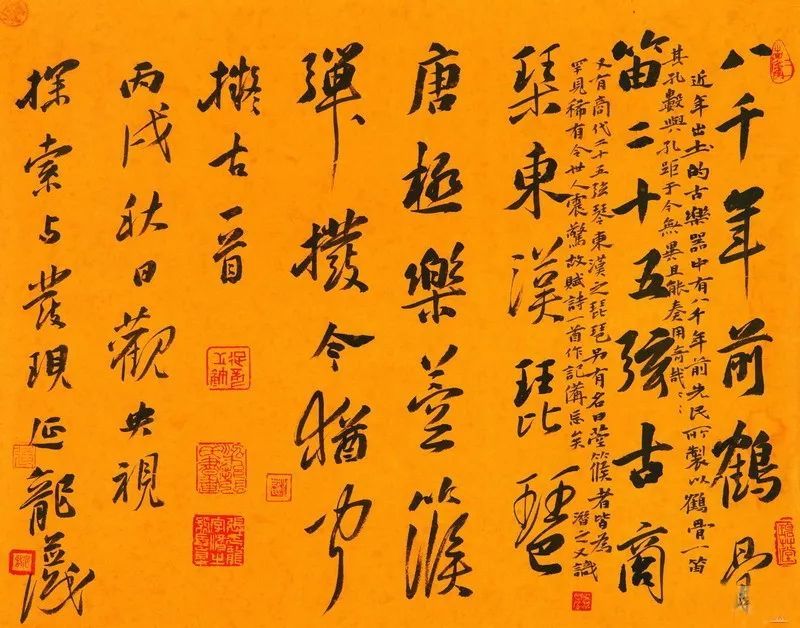 八千年前鶴骨
近年出土的古樂器中有八千年前先民所製以鶴骨一笛
其孔數與孔距于今無異且能奏用奇哉
笛二十五弦古商
又有商代二十五弦琴東漢之琵琶另有名曰箜篌者皆為
罕見稀有令世人震驚故賦詩一首作記備忘矣
潛之又識
琹東漢琵琶
唐極樂箜篌
彈撥今猶聞
擬古一首
丙戌秋日觀央視
探索与發現延龍識